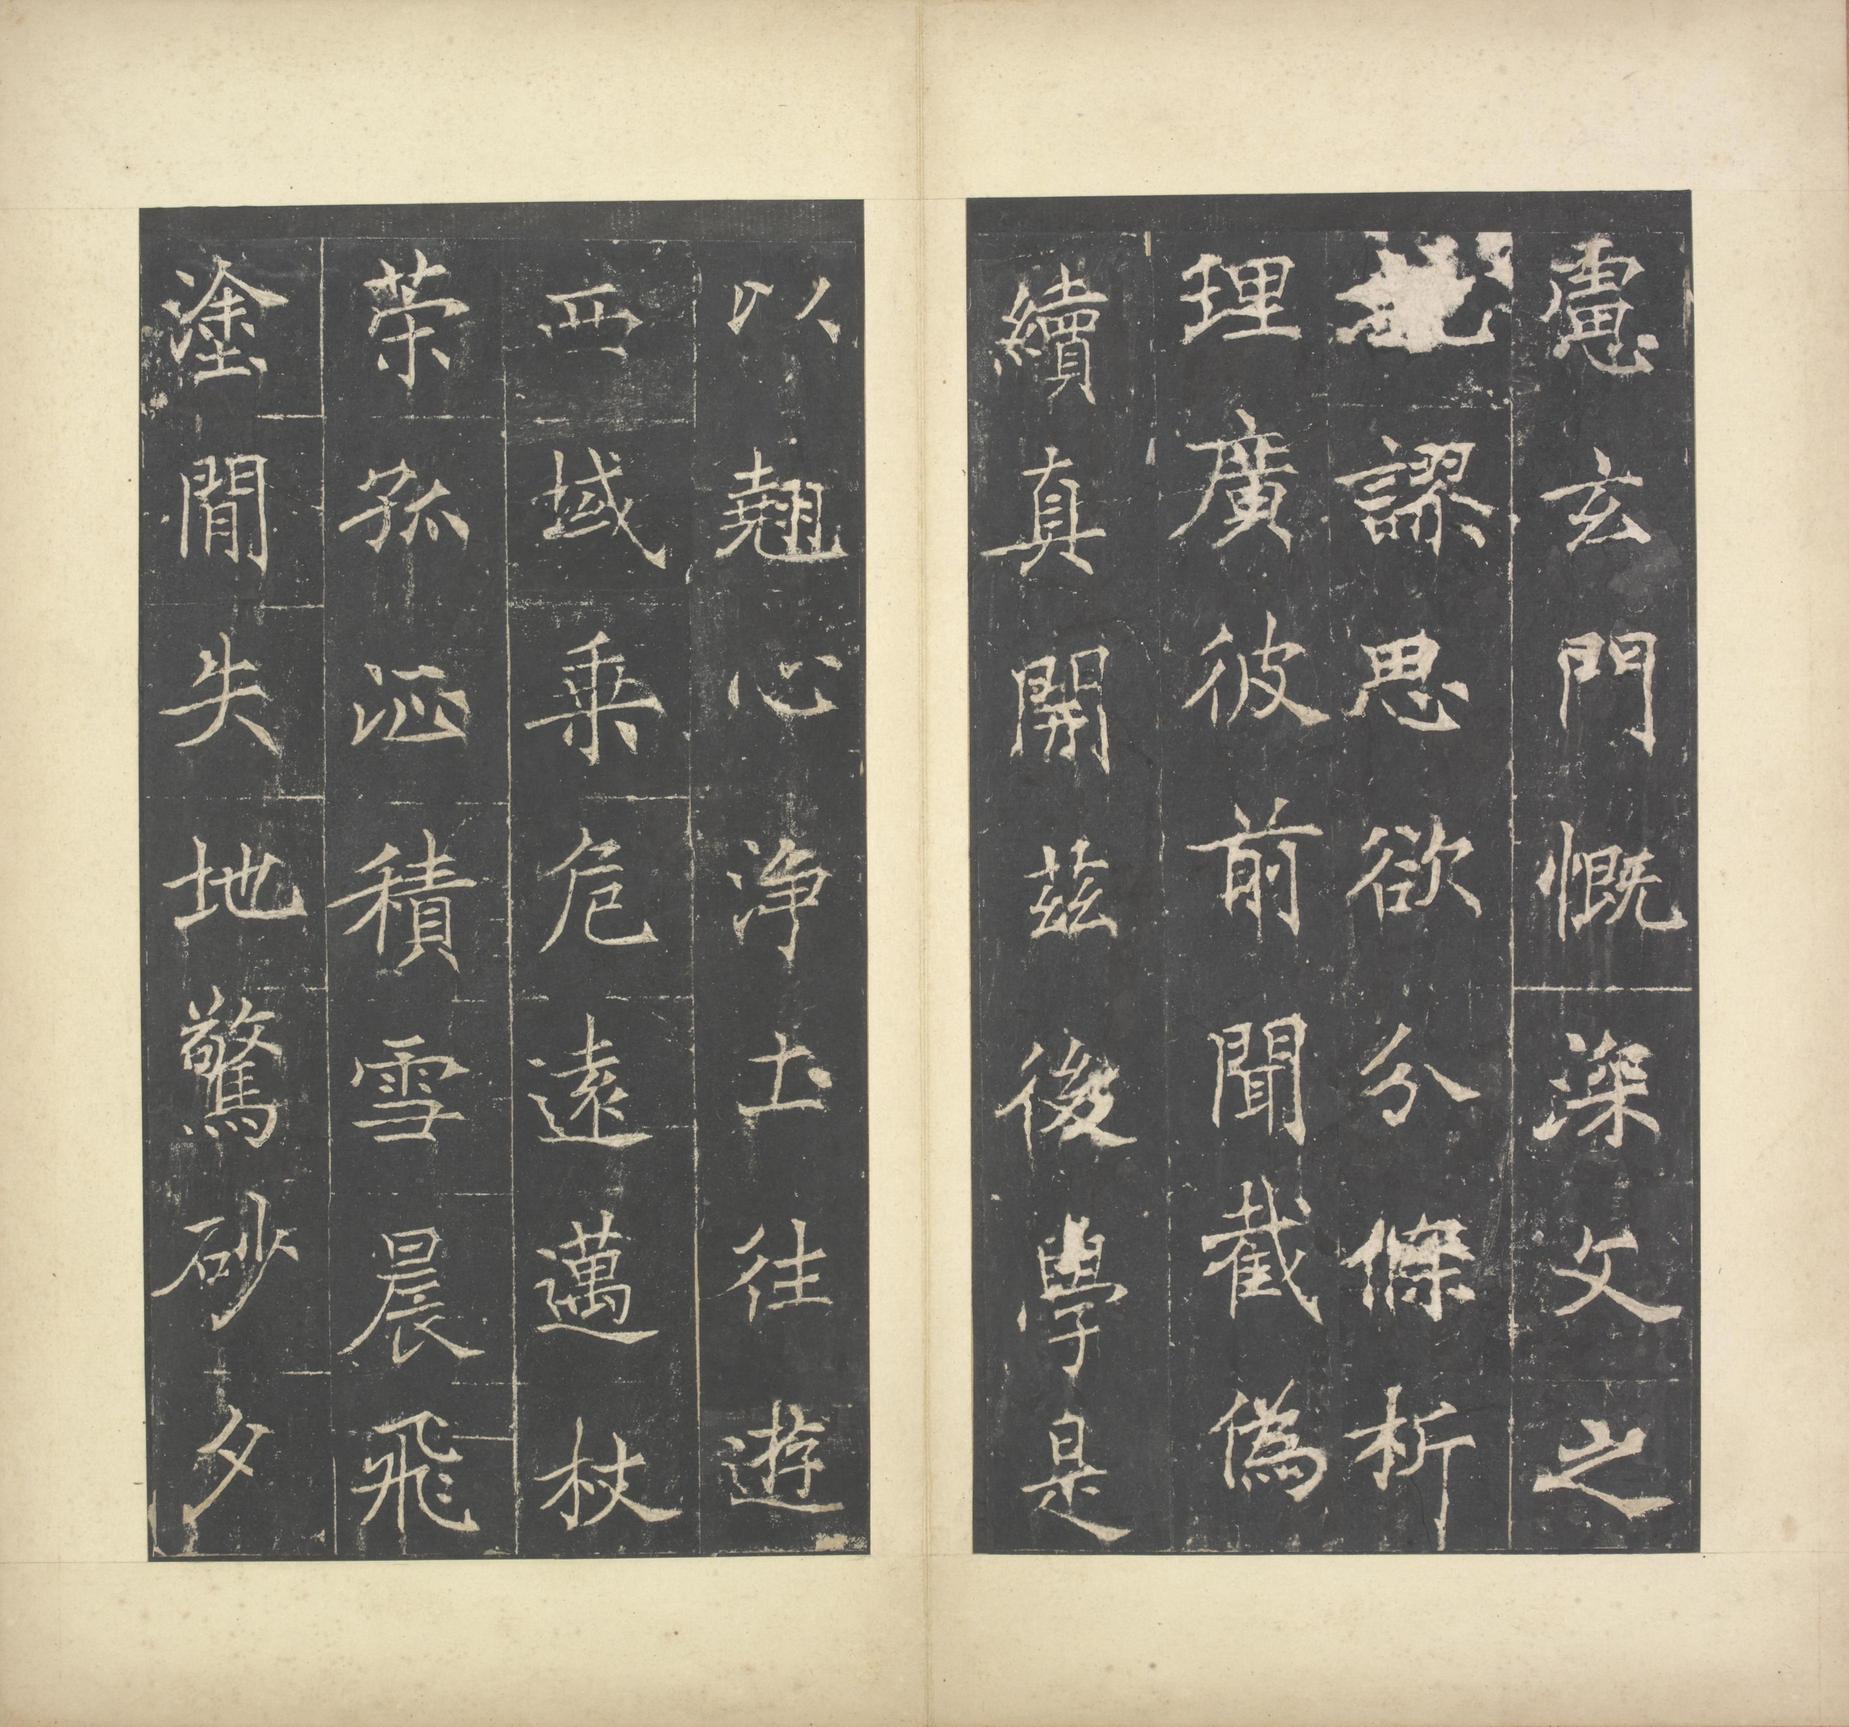 慮玄門慨深文之
謬思欲分條析
理廣彼前聞截偽
續真開茲後學是
以翹心淨土往遊
西域乘危遠邁杖
策孤征積雪晨飛
塗閒失地驚砂夕